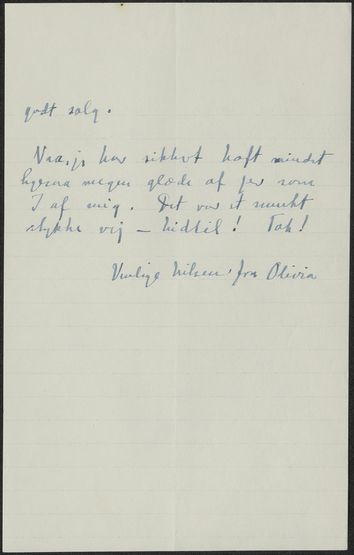 godt salg.
Naa, jeg har sikkert haft mindst
ligesaa megen glæde af jer som
I af mig. Det var et smukt
stykke vej – hidtil! Tak!
Venlige hilsen fra Olivia